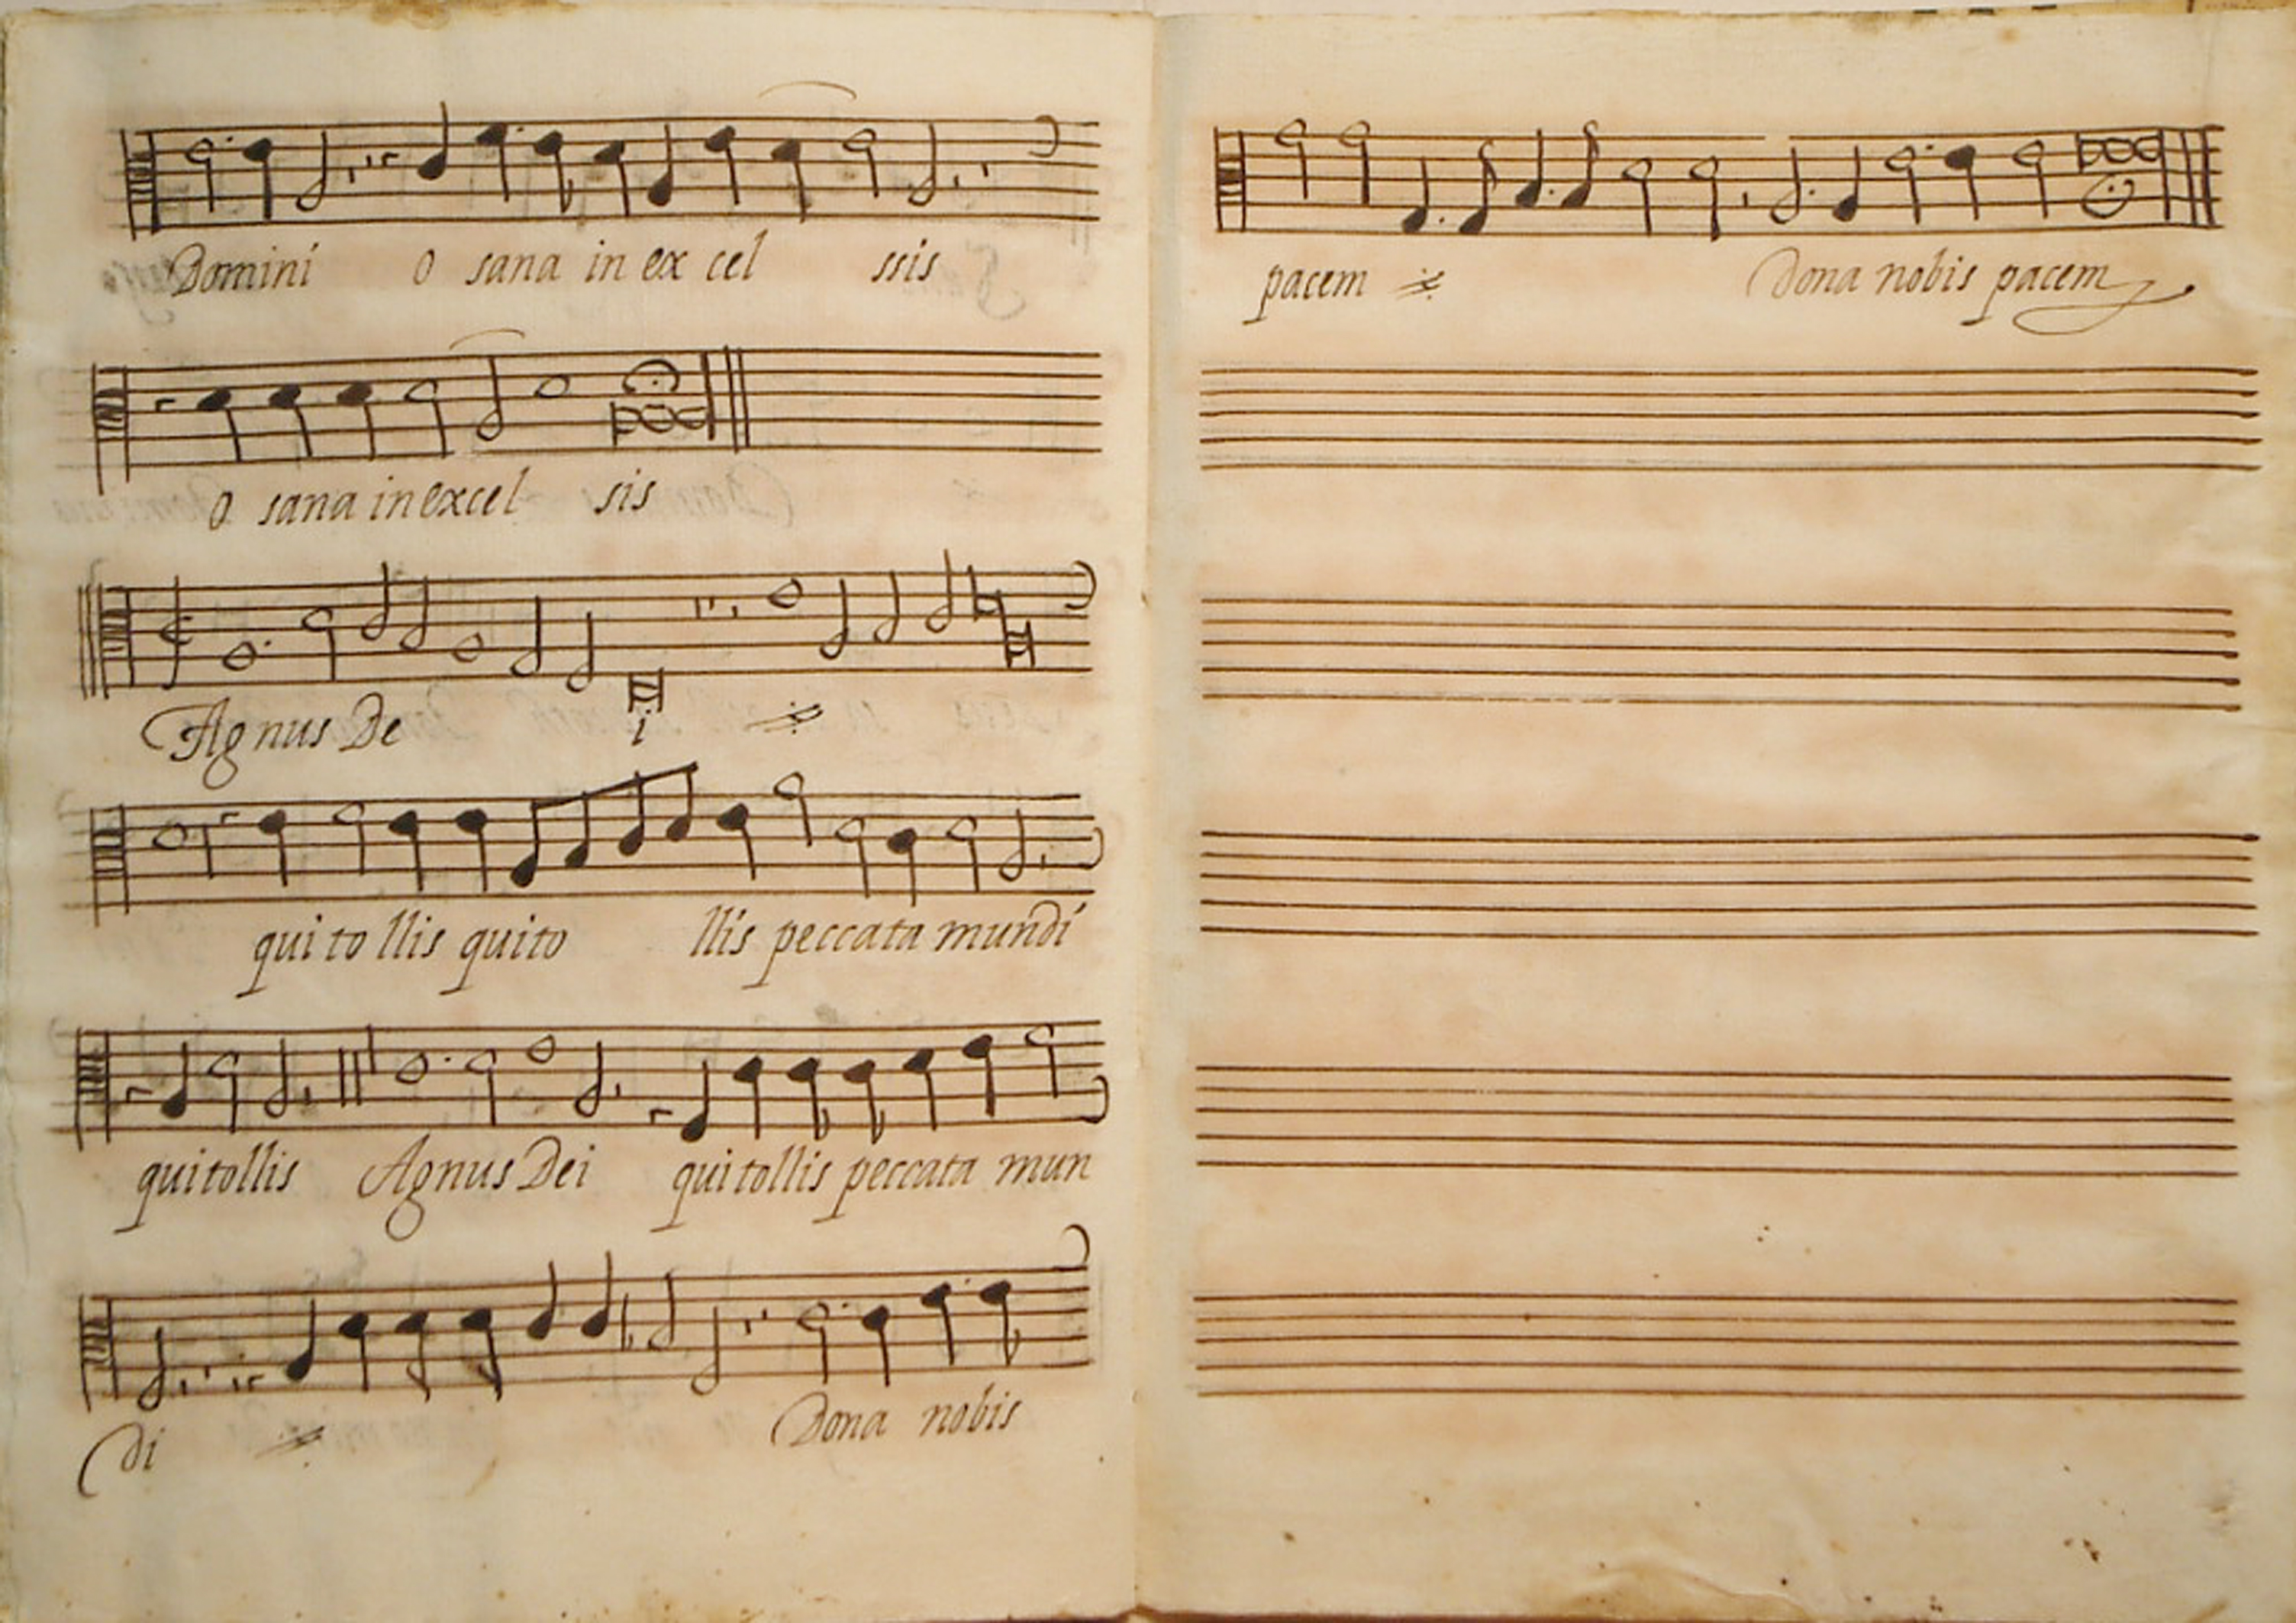 Domini O sana in ex cel ssis
O sana in excel sis
Agnus De i
qui to llis qui to llis peccata mundi
qui tollis Agnus Dei qui tollis peccata mun
di Dona nobis
pacem Dona nobis pacem